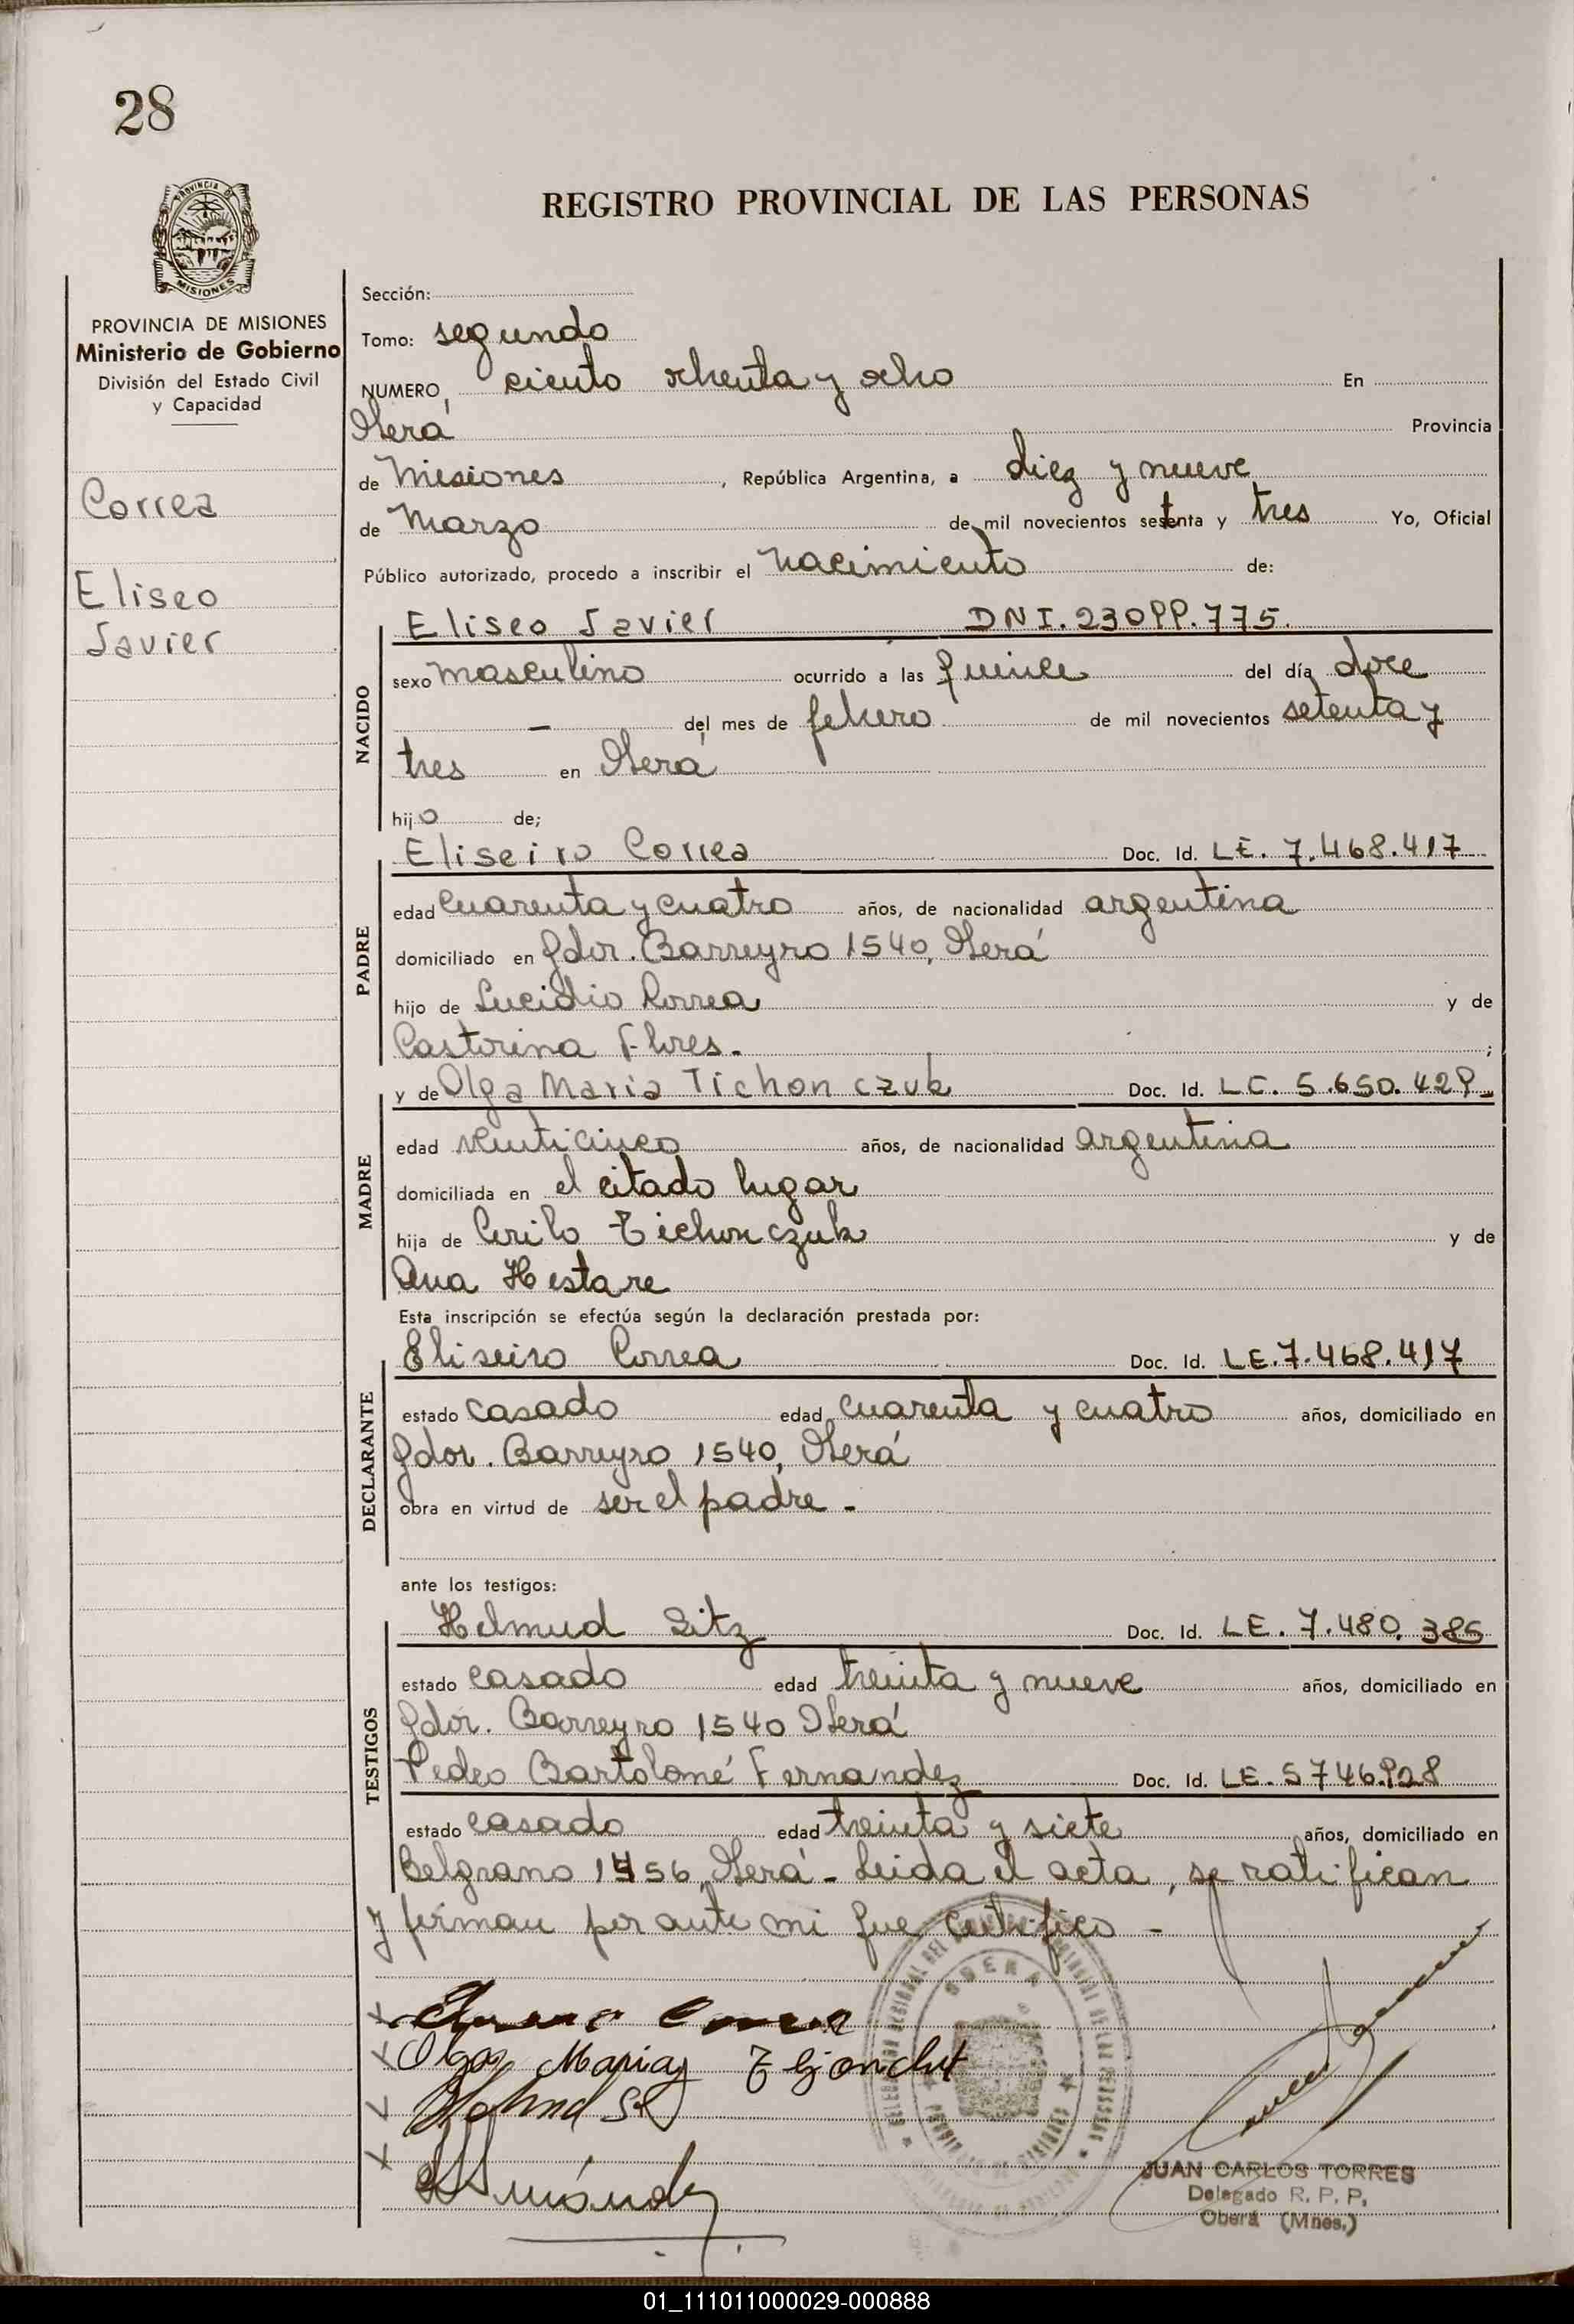 28
PROVINCIA DE MISIONES
REGISTRO PROVINCIAL DE LAS PERSONAS
PROVINCIA DE MISIONES
Ministerio de Gobierno
División del Estado Civil
y Capacidad
Correa
Eliseo
Javier
Sección:
Tomo: segundo
NUMERO, ciento ochenta y ocho En
Oberá Provincia
de Misiones, República Argentina, a diez y nueve
de Marzo de mil novecientos setenta y tres Yo, Oficial
Público autorizado, procedo a inscribir el nacimiento de:
NACIDO
Eliseo Javier DNI. 23099.775.
sexo masculino ocurrido a las quince del día doce
- del mes de febrero de mil novecientos setenta y
tres en Oberá
hijo de;
PADRE
Eliseiro Correa Doc. Id. LE. 7.468.417
edad cuarenta y cuatro años, de nacionalidad argentina
domiciliado en Gdor. Barreyro 1540, Oberá
hijo de Lucidio Correa y de
Castorina Flores. ;
MADRE
y de Olga Maria Tichonczuk Doc. Id. LC. 5.650.429
edad venticinco años, de nacionalidad argentina
domiciliada en el citado lugar
hija de Cirilo Tichonczuk y de
Ana Hestare
Esta inscripción se efectúa según la declaración prestada por:
DECLARANTE
Eliseiro Correa Doc. Id. LE. 7.468.417
estado casado edad cuarenta y cuatro años, domiciliado en
Gdor. Barreyro 1540, Oberá
obra en virtud de ser el padre -
ante los testigos:
TESTIGOS
Helmud Sitz Doc. Id. LE. 7.480.385
estado casado edad treinta y nueve años, domiciliado en
Gdor. Barreyro 1540 Oberá
Pedro Bartolomé Fernandez Doc. Id. LE. 5746.928
estado casado edad treinta y siete años, domiciliado en
Belgrano 1456, Oberá - Leida el acta, se ratifican
y firman por ante mi que certifico -
Olga Maria
OBERA
JUAN CARLOS TORRES
Delegado R. P. P.
Oberá (Mnes.)
01_111011000029-000888